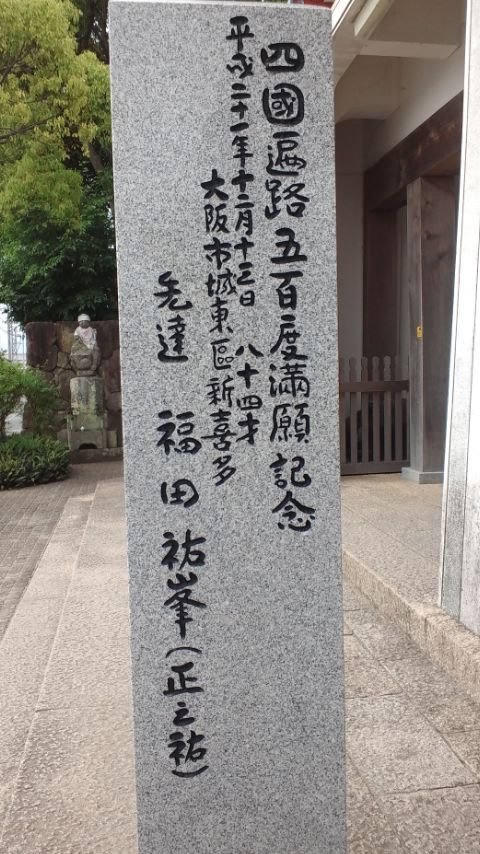 四國遍路五百度満願記念
平成二十一年十二月十三日 八十四才
大阪市城東區新喜多
先達 福田祐峯(正之祐)